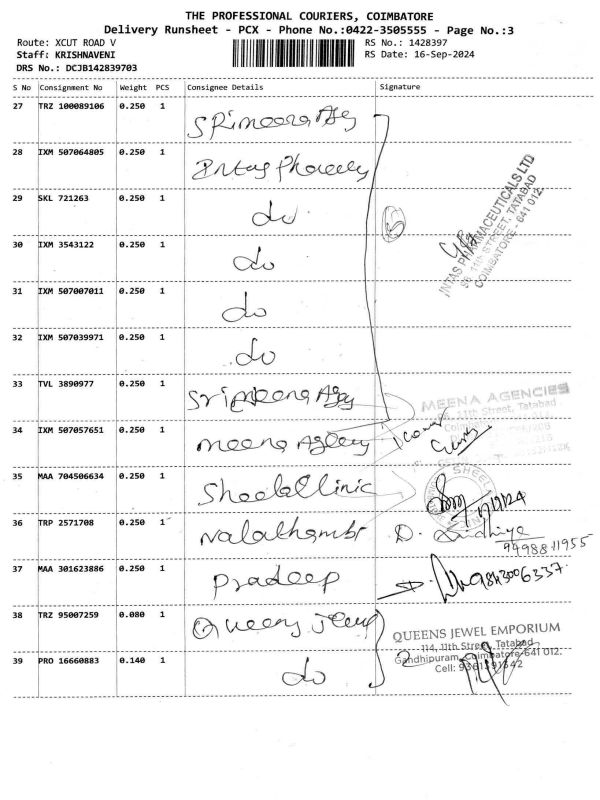 THE PROFESSIONAL COURIERS, COIMBATORE
Delivery Runsheet - PCX - Phone No.:0422-3505555 - Page No.:3
Route: XCUT ROAD V RS No.: 1428397
Staff: KRISHNAVENI RS Date: 16-Sep-2024
DRS No.: DCJB142839703
S No Consignment No Weight PCS Consignee Details Signature
27 TRZ 100089106 0.250 1 SRimeena Agy
28 IXM 507064805 0.250 1 Intas
29 SKL 721263 0.250 1 do
30 IXM 3543122 0.250 1 do
31 IXM 507007011 0.250 1 do
32 IXM 507039971 0.250 1 do
INTAS PHARMACEUTICALS LTD
96, 11th STREET, TATABAD
COIMBATORE - 641 012.
33 TVL 3890977 0.250 1 Srimeena Agy
MEENA AGENCIES
11th Street, Tatabad
34 IXM 507057651 0.250 1 meena
35 MAA 704506634 0.250 1 Sheela Clinic
SHEELA
36 TRP 2571708 0.250 1 Nalathambi D.
9498811955
37 MAA 301623886 0.250 1 Pradeep 9843006337
38 TRZ 95007259 0.080 1 Queens
QUEENS JEWEL EMPORIUM
114, 11th Street, Tatabad
Gandhipuram, Coimbatore-641 012.
39 PRO 16660883 0.140 1 do 2
Cell: 9361391342